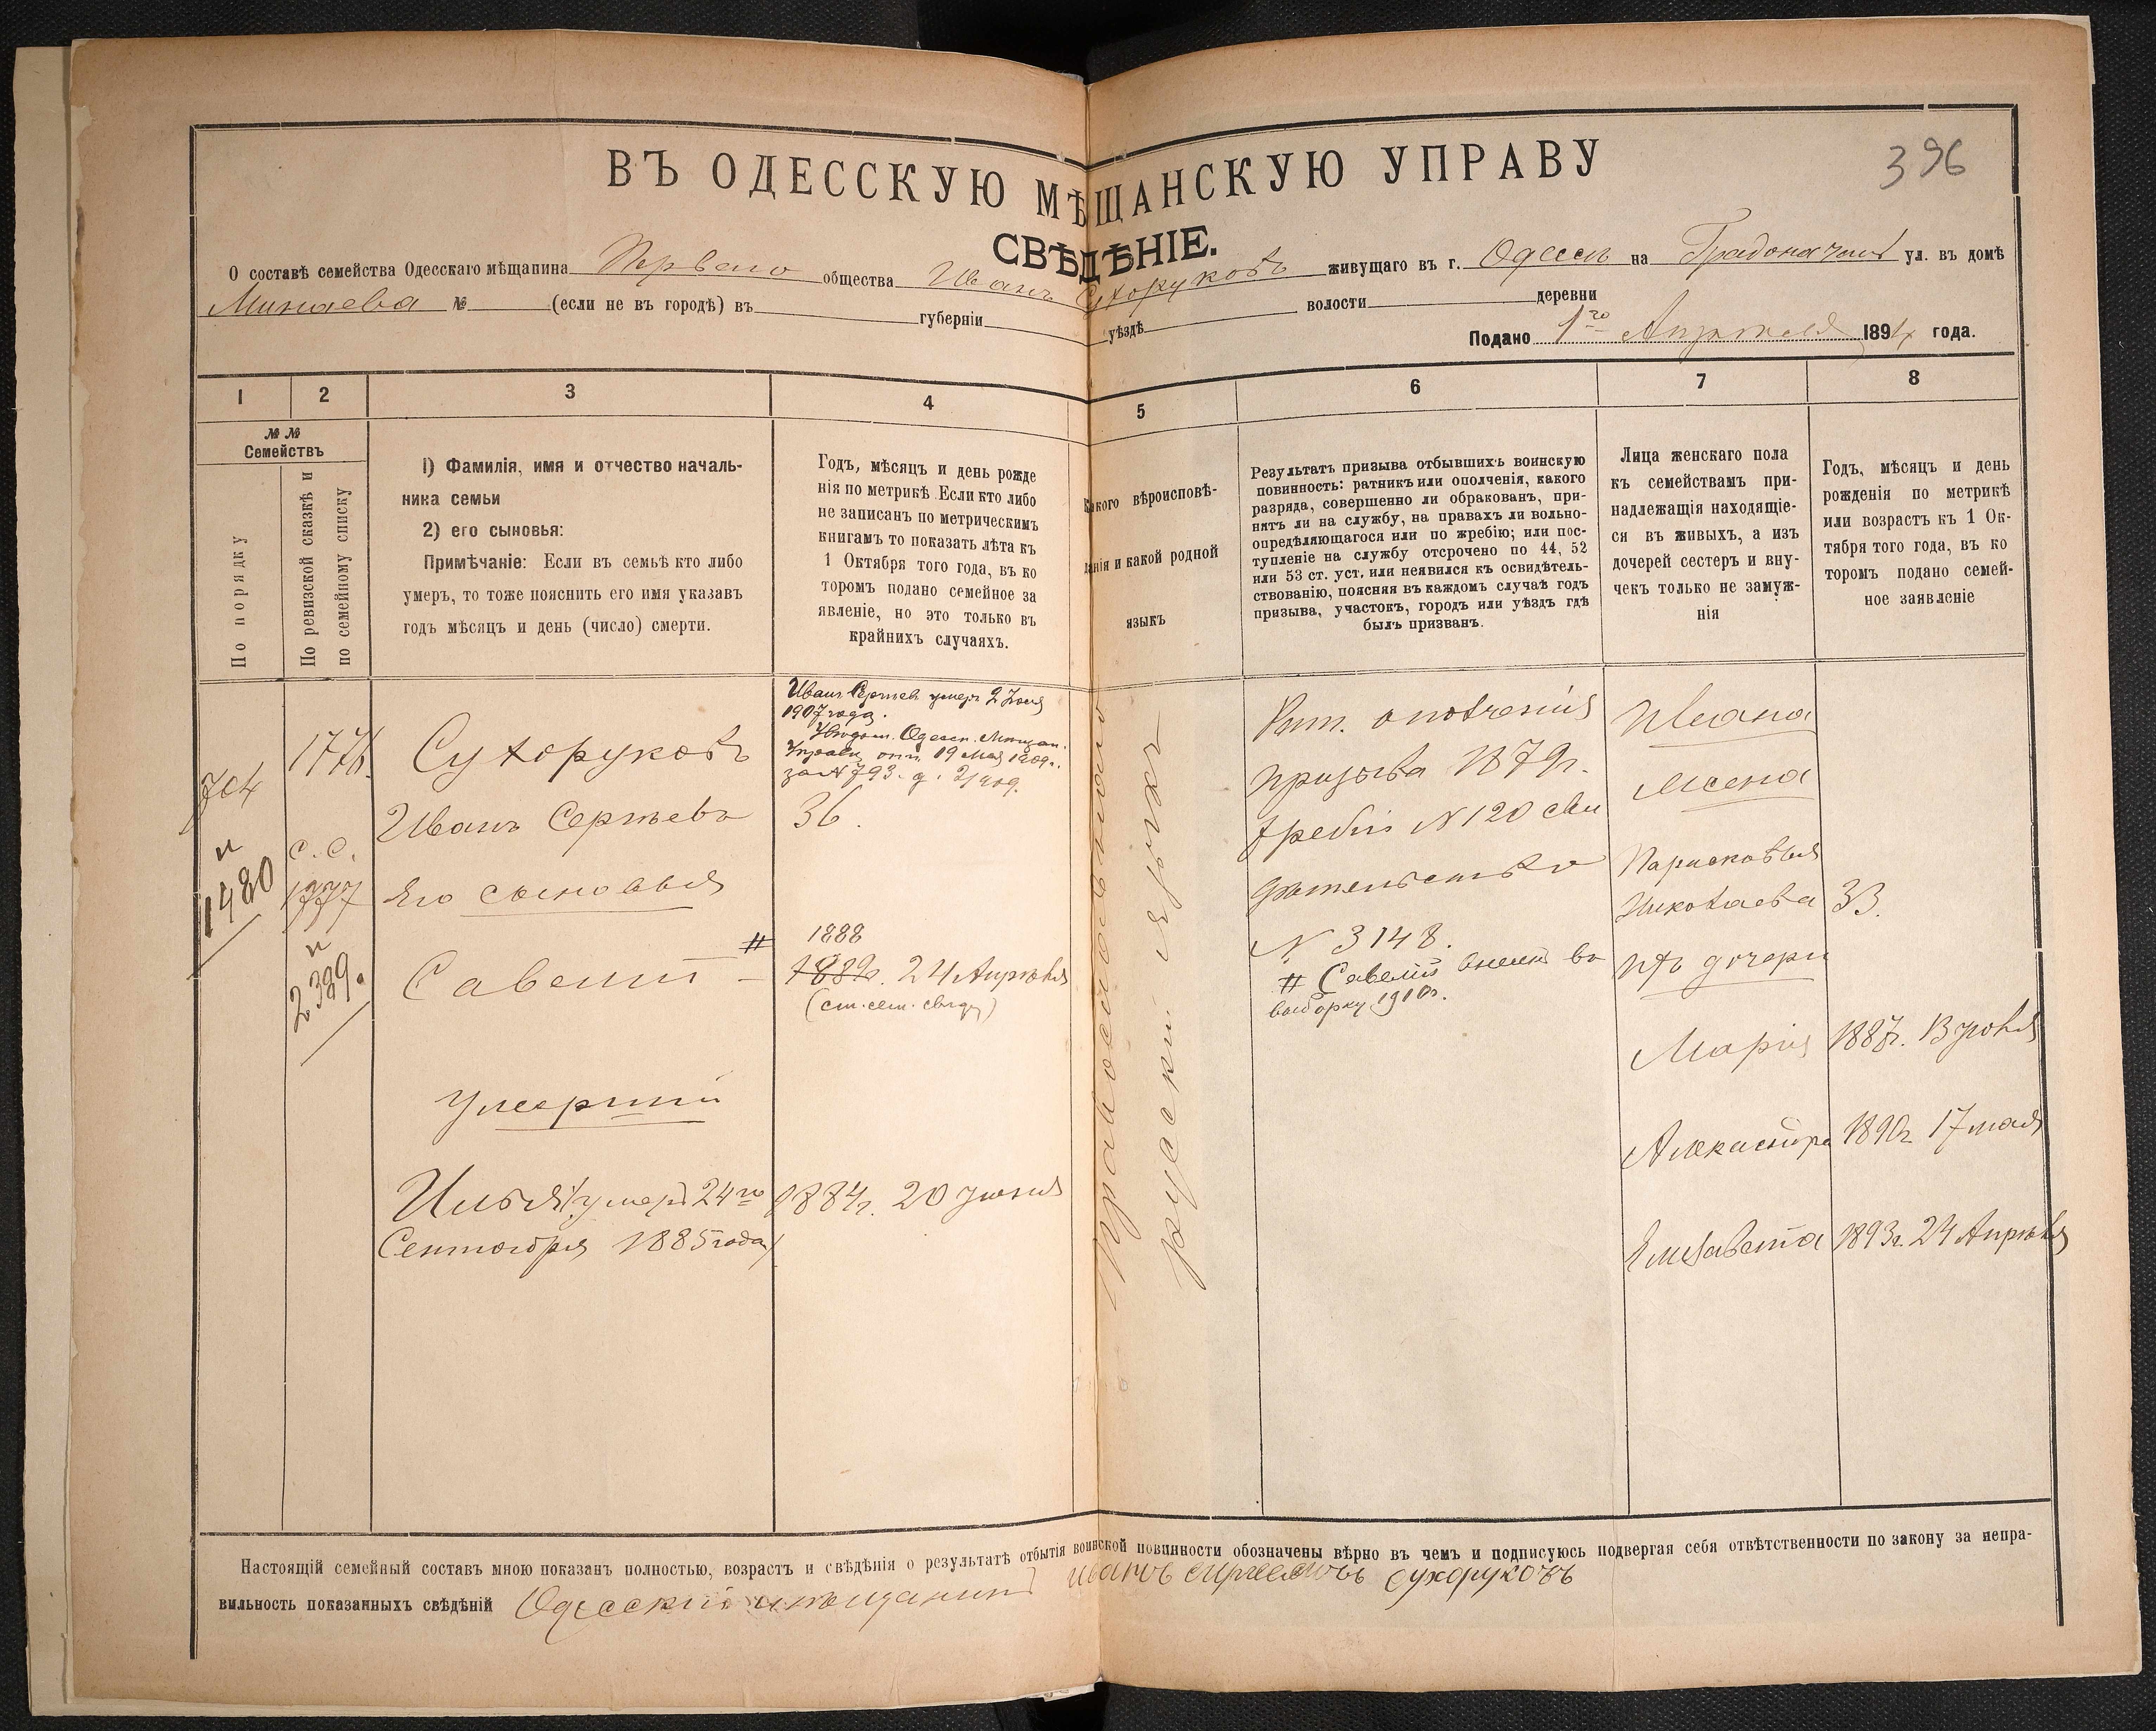 396
ВЪ ОДЕССКУЮ МѢЩАНСКУЮ УПРАВУ
СВѢДѢНІЕ.
О составѣ семейства Одесскаго мѣщанина Перваго общества Иванъ Сухоруковъ живущаго въ г. Одессѣ на Градоначал ул. въ домѣ
Минаева № (если не въ городѣ) въ губерніи уѣздѣ волости деревни
Подано 1го Апрѣля 1894 года.
1 2 3 4 5 6 7 8
№№
Семействъ
По порядку
По ревизской сказкѣ и
по семейному списку
1) Фамилія, имя и отчество началь-
ника семьи
2) его сыновья:
Примѣчаніе: Если въ семьѣ кто либо
умеръ, то тоже пояснить его имя указавъ
годъ мѣсяцъ и день (число) смерти.
Годъ, мѣсяцъ и день рожде
нія по метрикѣ Если кто либо
не записанъ по метрическимъ
книгамъ то показать лѣта къ
1 Октября того года, въ ко
торомъ подано семейное за
явленіе, но это только въ
крайнихъ случаяхъ.
Какого вѣроисповѣ-
данія и какой родной
языкъ
Результатъ призыва отбывшихъ воинскую
повинность: ратникъ или ополченія, какого
разряда, совершенно ли обракованъ, при-
нятъ ли на службу, на правахъ ли вольно-
опредѣляющагося или по жребію; или пос-
тупленіе на службу отсрочено по 44, 52
или 53 ст. уст. или неявился къ освидѣтель-
ствованію, поясняя въ каждомъ случаѣ годъ
призыва, участокъ, городъ или уѣздъ гдѣ
былъ призванъ.
Лица женскаго пола
къ семействамъ при-
надлежащія находящіе-
ся въ живыхъ, а изъ
дочерей сестеръ и вну-
чекъ только не замуж-
нія
Годъ, мѣсяцъ и день
рожденія по метрикѣ
или возрастъ къ 1 Ок-
тября того года, въ ко
торомъ подано семей-
ное заявленіе
704
и
1480
177
с.с.
1777
и
2389.
Сухоруковъ
Иванъ Сергѣевъ
Его сыновья
Савелій #
Умершій
Илья (умеръ 24го
Сентября 1885 года)
Иванъ Сергѣев умеръ 2 Іюля
1907 года.
Увѣдом. Одесск. Мѣщан.
Управы отъ 19 Мая 1909 г.
за № 793. д. 2/909.
36.
1888
1889г. 24 Апрѣля
(см. сем. свѣд.)
1884г. 20 Іюня
Православнаго
русскій языкъ
Рат. ополченія
призыва 1879г.
жребій № 120 сви
дѣтельство
№ 3148.
# Савелій внесенъ въ
выборку 1910г.
Ивана
жена
Парасковья
Николаева
33.
Ихъ дочери
Марія
1887г. 13 Іюля
Александра
1890г. 17 мая
Елизавета
1893г. 24 Апрѣля
Настоящій семейный составъ мною показанъ полностью, возрастъ и свѣдѣнія о результатѣ отбытія воинской повинности обозначены вѣрно въ чемъ и подписуюсь подвергая себя отвѣтственности по закону за непра-
вильность показанныхъ свѣдѣній Одесскій мѣщанинъ иванъ сухоруковъ